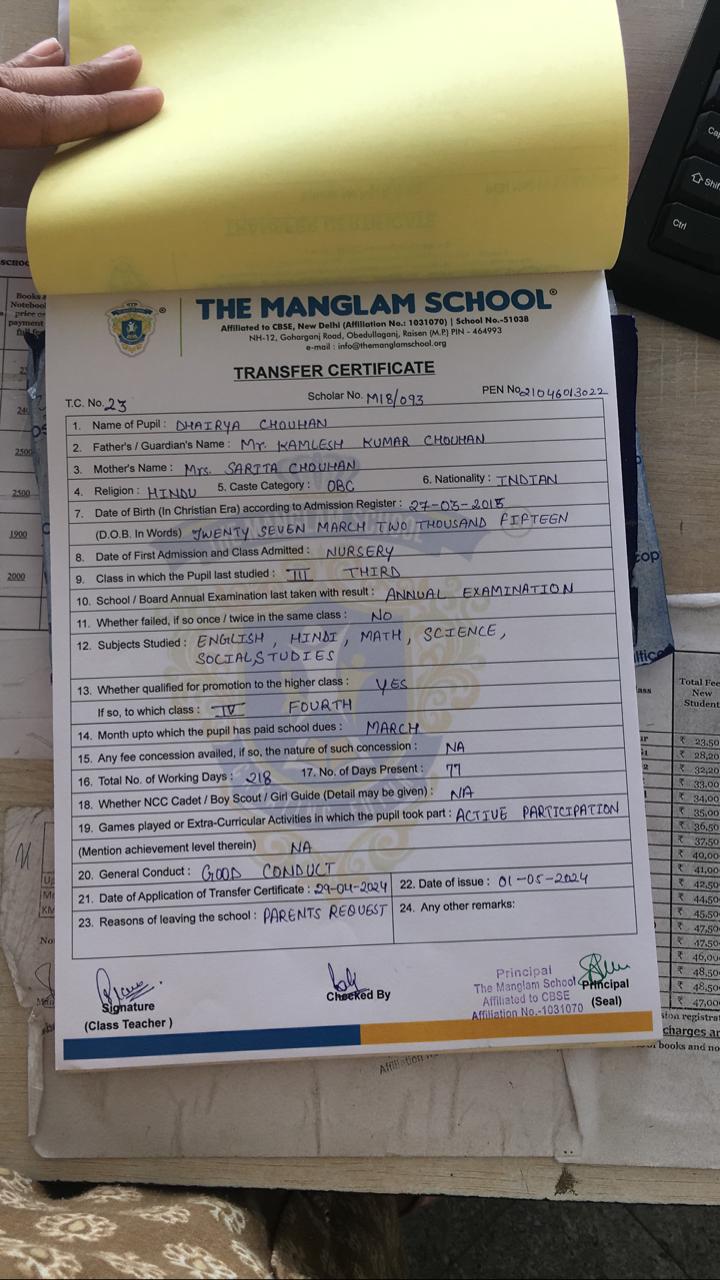 THE MANGLAM SCHOOL®
Affiliated to CBSE, New Delhi (Affiliation No.: 1031070) | School No.-51038
NH-12, Goharganj Road, Obedullaganj, Raisen (M.P.) PIN - 464993
e-mail : info@themanglamschool.org
TRANSFER CERTIFICATE
T.C. No. 23 Scholar No. M18/093 PEN No 21046013022
1. Name of Pupil : DHAIRYA CHOUHAN
2. Father's / Guardian's Name : Mr. KAMLESH KUMAR CHOUHAN
3. Mother's Name : Mrs. SARITA CHOUHAN
4. Religion : HINDU 5. Caste Category : OBC 6. Nationality : INDIAN
7. Date of Birth (In Christian Era) according to Admission Register : 27-03-2015
(D.O.B. In Words) TWENTY SEVEN MARCH TWO THOUSAND FIFTEEN
8. Date of First Admission and Class Admitted : NURSERY
9. Class in which the Pupil last studied : III THIRD
10. School / Board Annual Examination last taken with result : ANNUAL EXAMINATION
11. Whether failed, if so once / twice in the same class : NO
12. Subjects Studied : ENGLISH, HINDI, MATH, SCIENCE,
SOCIAL STUDIES
13. Whether qualified for promotion to the higher class : YES
If so, to which class : IV FOURTH
14. Month upto which the pupil has paid school dues : MARCH
15. Any fee concession availed, if so, the nature of such concession : NA
16. Total No. of Working Days : 218 17. No. of Days Present : 77
18. Whether NCC Cadet / Boy Scout / Girl Guide (Detail may be given) : NA
19. Games played or Extra-Curricular Activities in which the pupil took part : ACTIVE PARTICIPATION
(Mention achievement level therein) NA
20. General Conduct : GOOD CONDUCT
21. Date of Application of Transfer Certificate : 29-04-2024 22. Date of issue : 01-05-2024
23. Reasons of leaving the school : PARENTS REQUEST 24. Any other remarks:
Signature
(Class Teacher )
Checked By
Principal
The Manglam School
Affiliated to CBSE
Affiliation No.-1031070
Principal
(Seal)
Books &
Notebook
price
payment
2500
2500
1900
2000
Total Fee
New
Student
₹ 23,50
₹ 28,20
₹ 32,20
₹ 33,00
₹ 34,00
₹ 35,00
₹ 36,50
₹ 37,50
₹ 40,00
₹ 41,00
₹ 42,50
₹ 44,50
₹ 45,50
₹ 47,50
₹ 47,50
₹ 46,00
₹ 48,50
₹ 48,50
₹ 47,00
charges
books and no
Shi
Ctrl